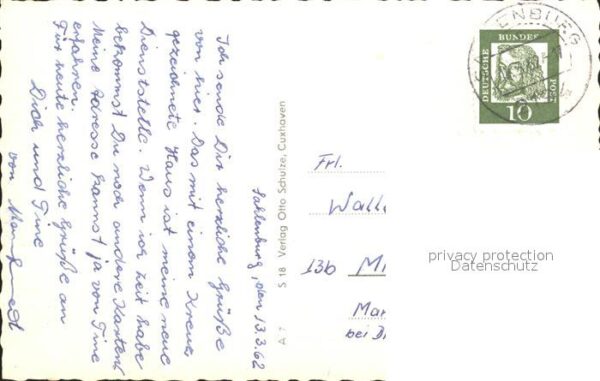 Sahlenburg, den 13.3.62
Ich sende Dir herzliche Grüße
von hier. Das mit einem Kreuz
gezeichnete Haus ist meine neue
Dienststelle. Wenn ich Zeit habe
bekommst Du noch andere Karten!
Meine Adresse kannst ja von Tine
erfahren.
Für heute herzliche Grüße an
Dich und Tine
von
A 7 S 18 Verlag Otto Schulze, Cuxhaven
ENBURG
DEUTSCHE
BUNDES
POST
10
Frl.
Walle
13b Mi
Mar
bei D
privacy protection
Datenschutz